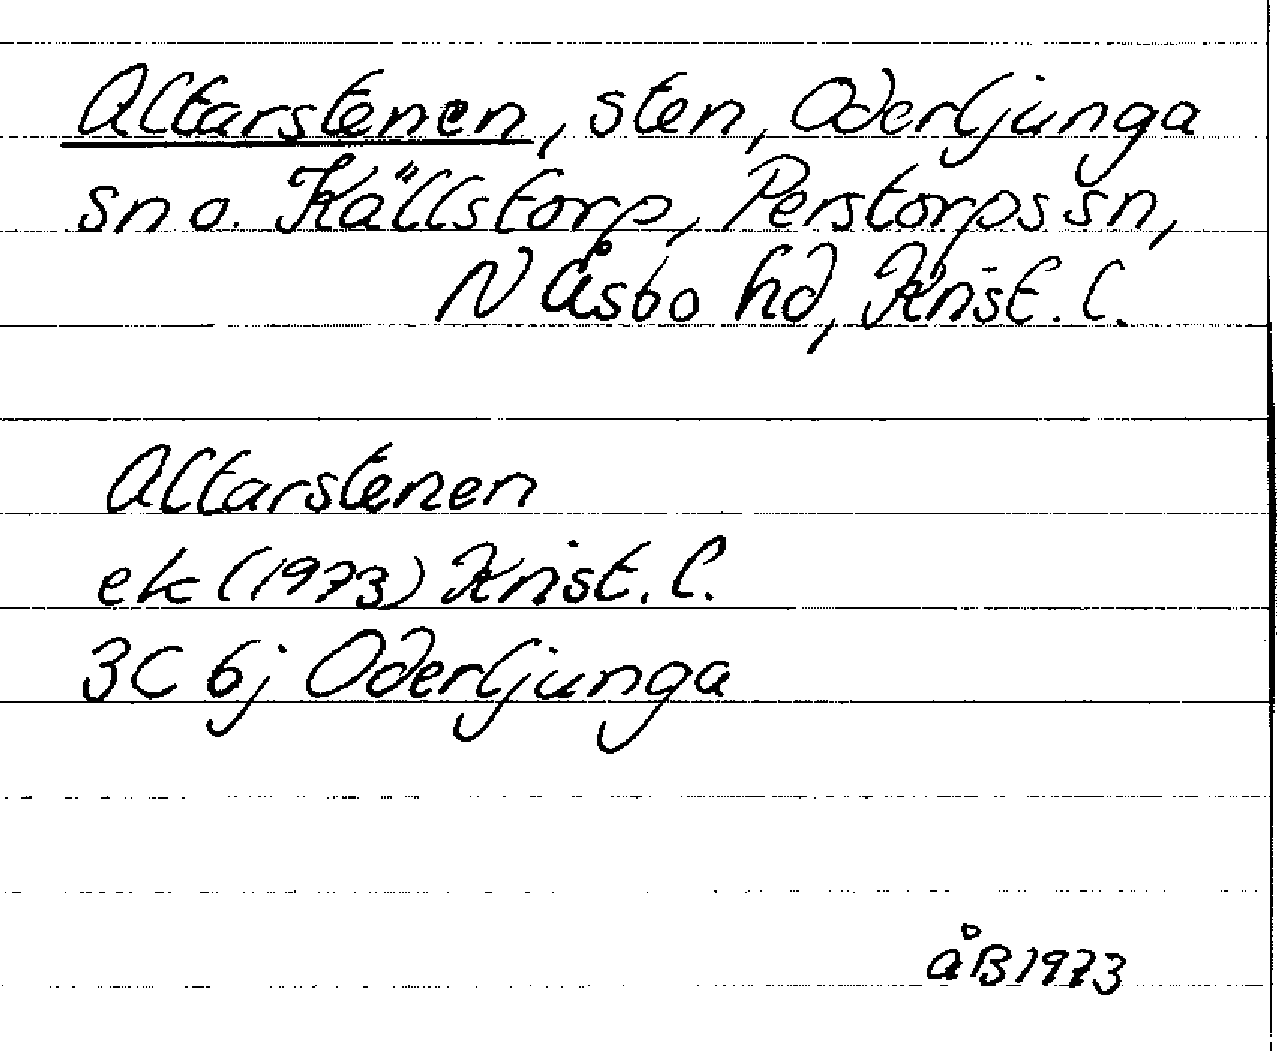 Altarstenen, sten, Oderljunga
sn o. Källstorp, Perstorps sn,
N Åsbo hd, Krist. l.
Altarstenen
ek (1973) Krist. l.
3C 6j Oderljunga
åB 1973